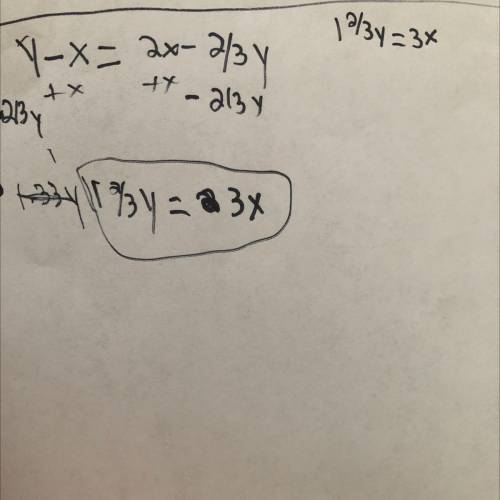 1 2/3y = 3x
y - x = 2x - 2/3y
+x +x - 2/3y
2/3y
1 2/3y = 3x